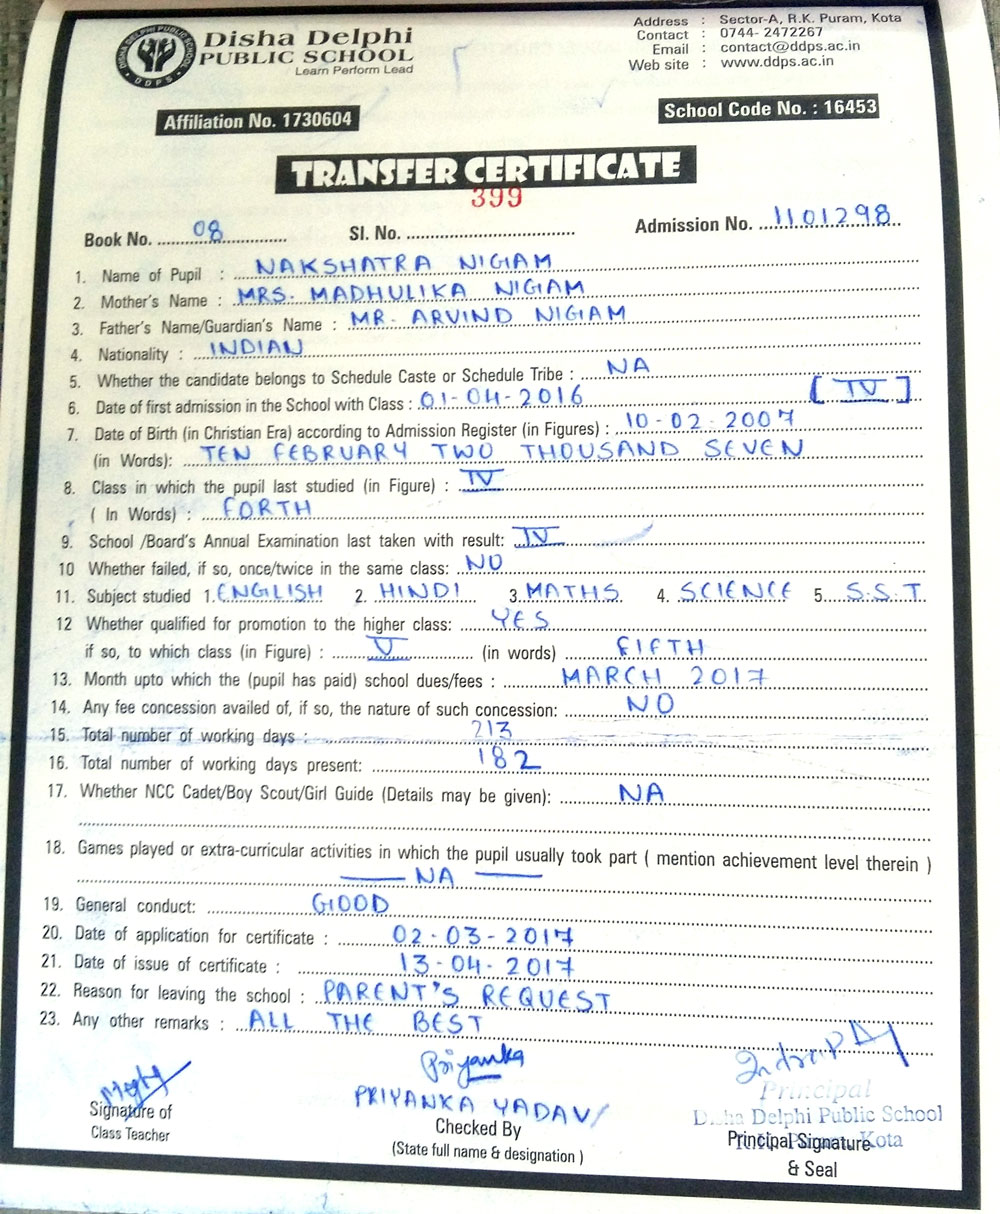 DISHA DELPHI PUBLIC SCHOOL
DDPS
Disha Delphi
PUBLIC SCHOOL
Learn Perform Lead
Address : Sector-A, R.K. Puram, Kota
Contact : 0744- 2472267
Email : contact@ddps.ac.in
Web site : www.ddps.ac.in
Affiliation No. 1730604
School Code No. : 16453
TRANSFER CERTIFICATE
399
Book No. 08 Sl. No. Admission No. 1101298
1. Name of Pupil : NAKSHATRA NIGAM
2. Mother's Name : MRS. MADHULIKA NIGAM
3. Father's Name/Guardian's Name : MR. ARVIND NIGAM
4. Nationality : INDIAN
5. Whether the candidate belongs to Schedule Caste or Schedule Tribe : NA
6. Date of first admission in the School with Class : 01-04-2016 [IV]
7. Date of Birth (in Christian Era) according to Admission Register (in Figures) : 10-02-2007
(in Words): TEN FEBRUARY TWO THOUSAND SEVEN
8. Class in which the pupil last studied (in Figure) : IV
( In Words) : FORTH
9. School /Board's Annual Examination last taken with result: IV
10 Whether failed, if so, once/twice in the same class: NO
11. Subject studied 1. ENGLISH 2. HINDI 3. MATHS 4. SCIENCE 5. S.S.T
12 Whether qualified for promotion to the higher class: YES
if so, to which class (in Figure) : V (in words) FIFTH
13. Month upto which the (pupil has paid) school dues/fees : MARCH 2017
14. Any fee concession availed of, if so, the nature of such concession: NO
15. Total number of working days : 213
16. Total number of working days present: 182
17. Whether NCC Cadet/Boy Scout/Girl Guide (Details may be given): NA
18. Games played or extra-curricular activities in which the pupil usually took part ( mention achievement level therein )
— NA —
19. General conduct: GOOD
20. Date of application for certificate : 02-03-2017
21. Date of issue of certificate : 13-04-2017
22. Reason for leaving the school : PARENT'S REQUEST
23. Any other remarks : ALL THE BEST
Priyanka
PRIYANKA YADAV
Principal
Disha Delphi Public School
Kota
Signature of
Class Teacher
Checked By
(State full name & designation )
Principal Signature
& Seal